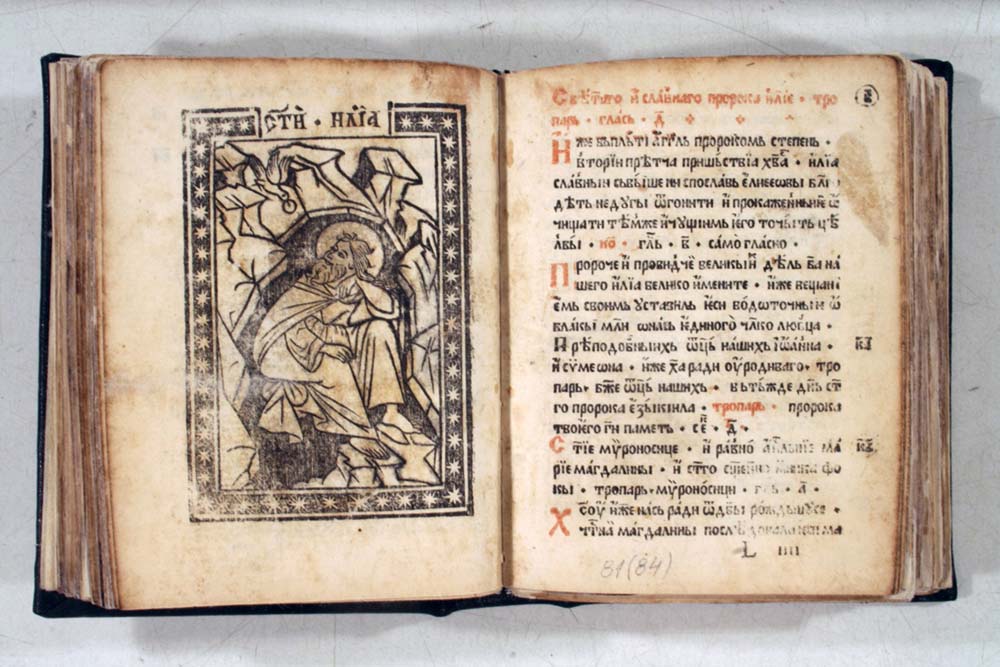 СТ҃И · ИЛИꙖ
С вѣт҃аго и҆ сла́внаго пророка и҆лїе · тро
парь · гласъ · д҃
И҆ же въплъти а҆гг҃ль пророкомь степень ·
вторїи прѣтча пришьствїꙗ хв҃а · и҆лїа
сла́вныи съвыше ни спославь елисеови бл҃го
дѣть недугы ѿгонити и҆ прокаженныи ѡ҆
чищати тѣмже и҆ чтущимь и҆его точыть цѣ
льбы · ко · гл҃ь · в҃ · само̀гласно ·
П ророче и҆ провидче великыи дѣль б҃а на
шего и҆лїа велико и҆мените · и҆же вещанї
е҆мь своимь уставиль и҆си во́дѡточныи ѡ҆
блакы мл҃и ѡ҆нась и҆единого̀ чл҃колюбца ·
П рѣподѡбныихь ѡ҆ц҃ь нашихь и҆ѡ҆а́нна · к҃а
и҆ сѵмеѡна · и҆же х҃а ради оу҆родиваго · тро
парь · бж҃е ѡ҆ц҃ь нашихь · вътъжде дн҃ь ст҃
го пророка е҆зыкїила · тропарь · пророка
твоего г҃и паметь · се · д҃ ·
С тїе мѵроносице · и҆ равно а҆пл҃ьнїе ма к҃в
рїе магдалины · и҆ ст҃го сщ҃еноменика фо
кы · тропарь · мѵроно́сици · гл҃ь · а҃ ·
Х соу҆ и҆же нась ради ѿ дв҃ы рождьшусе ·
чт҃на магдалины послѣдовала и҆си ма
81(84)